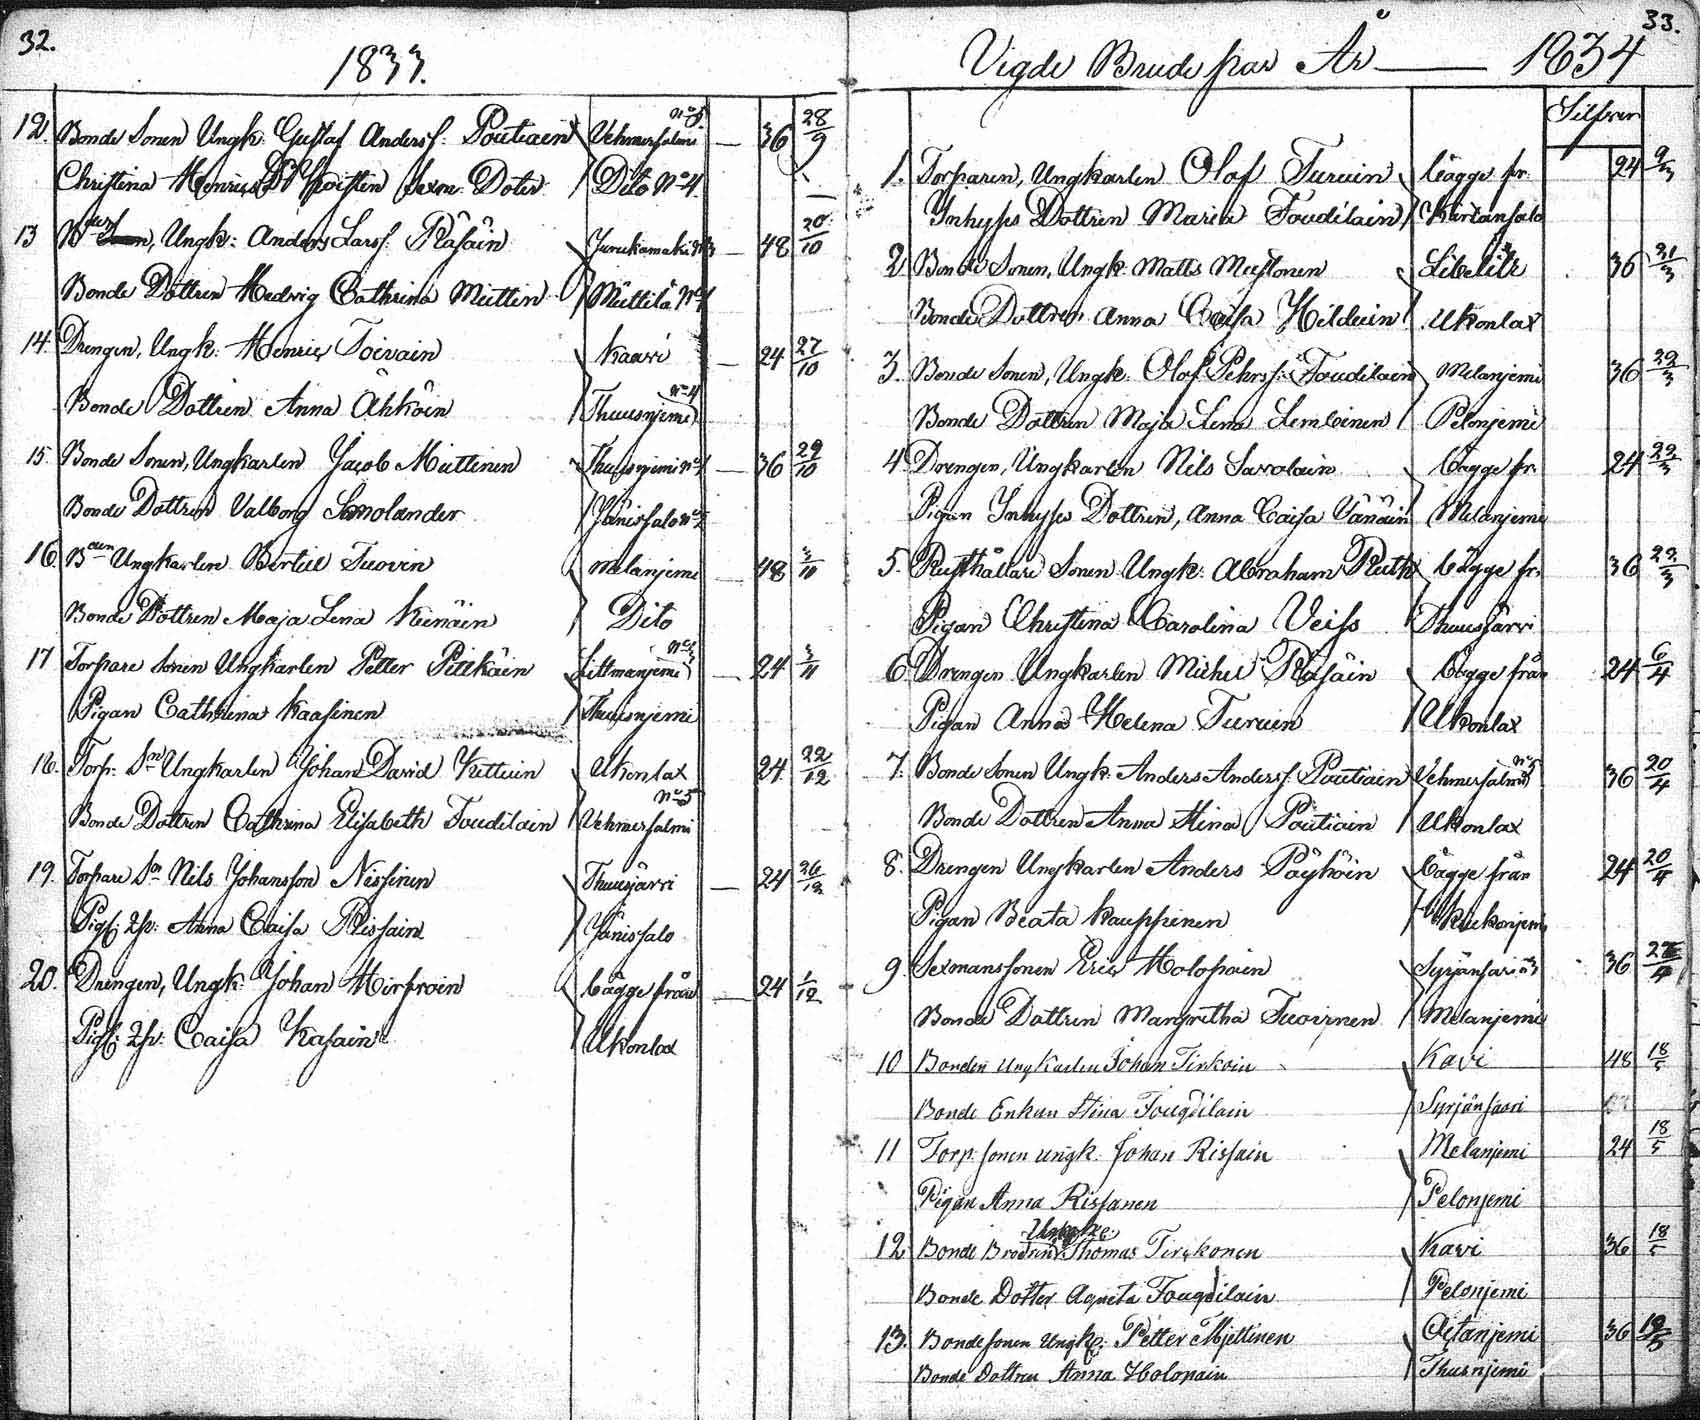 32.
1833.
12. Bonde Sonen Ungk: Gustaf Anderss: Poutiain Vehmersalmi No 5 — 36 28/9
Christina Henrics Dr Sexm: Doter Dito No 4.
13 Ungk: Anders Larss: Räsäin Jurukamaki No 3 — 48 20/10
Bonde Dottren Hedvig Cathrina Miettin Miettilä No 1
14. Drengen, Ungk: Henric Toivain Kaavi — 24 27/10
Bonde Dottren Anna Åhköin Thuusnjemi No 4
15. Bonde Sonen, Ungkarlen Jacob Miettinen Thuusnjemi No 1 — 36 29/10
Bonde Dottren Valborg Smolander Jänissalo No 2
16. Bden Ungkarlen Bertil Tuovin Melanjemi — 48 3/11
Bonde Dottren Maja Lena Kienäin Dito
17 Torpare Sonen Ungkarlen Petter Pitkäin Littmanjemi No 3 — 24 3/11
Pigan Cathrina Kaasinen Thuusnjemi
18. Torp: Sn Ungkarlen Johan David Kettuin Ukonlax 24 22/12
Bonde Dottren Cathrina Elisabeth Toudilain Vehmersalmi No 5
19. Torpare Sn Nils Johansson Nissinen Thuusjärvi — 24 26/12
Pig: Anna Caisa Rissain Jänissalo
20. Drengen, Ungk: Johan Hirfvoin bägge från — 24 1/12
Pig: Caisa Kasain Ukonlax
33.
Vigde Brudepar År — 1834
Silfver
1. Torparen, Ungkarlen Olof Turuin bägge fr: 24 9/3
Inhyses Dottren Maria Toudilain Kärtänsalo
2 Bonde Sonen, Ungk: Matts Mustonen Libelitz 36 21/3
Bonde Dottren Anna Caisa Hilduin Ukonlax
3. Bonde Sonen, Ungk: Olof Pehrss: Toudilain Melanjemi 36 22/3
Bonde Dottren Maja Lena Lemboinen Pelonjemi
4 Drengen, Ungkarlen Nils Savolain bägge fr: 24 22/3
Pigan Inhyses Dottren, Anna Caisa Vänäin Melanjemi
5. Rusthållare Sonen Ungk: Abraham Ruth bägge fr: 36 22/3
Pigan Christina Carolina Veiss Thuusjärvi
6 Drengen Ungkarlen Michel Räsäin bägge från 24 6/4
Pigan Anna Helena Turuin Ukonlax
7. Bonde Sonen Ungk: Anders Anderss: Poutiain Vehmersalmi No 5 36 20/4
Bonde Dottren Anna Stina Poutiain Ukonlax
8. Drengen Ungkarlen Anders Päyhöin bägge från 24 20/4
Pigan Beata Kauppinen Kukonjemi
9 Sexmanssonen Eric Holopain Syrjänsari No 3 36 27/4
Bonde Dottren Margretha Tuovinen Melanjemi
10 Bonden Ungkarlen Johan Tirkoin Kavi 48 18/5
Bonde Enkan Stina Tougdilain Syrjänsaari
11 Torp: sonen ungk: Johan Rissain Melanjemi 24 18/5
Pigan Anna Rissanen Pelonjemi
12 Bonde Brodren Ungk: Thomas Tirckonen Kavi 36 18/5
Bonde Dotter Agneta Tougdilain Pelonjemi
13. Bondesonen Ungk: Petter Mjettinen Oitanjemi 36 19/5
Bonde Dottren Anna Holopain Thusnjemi